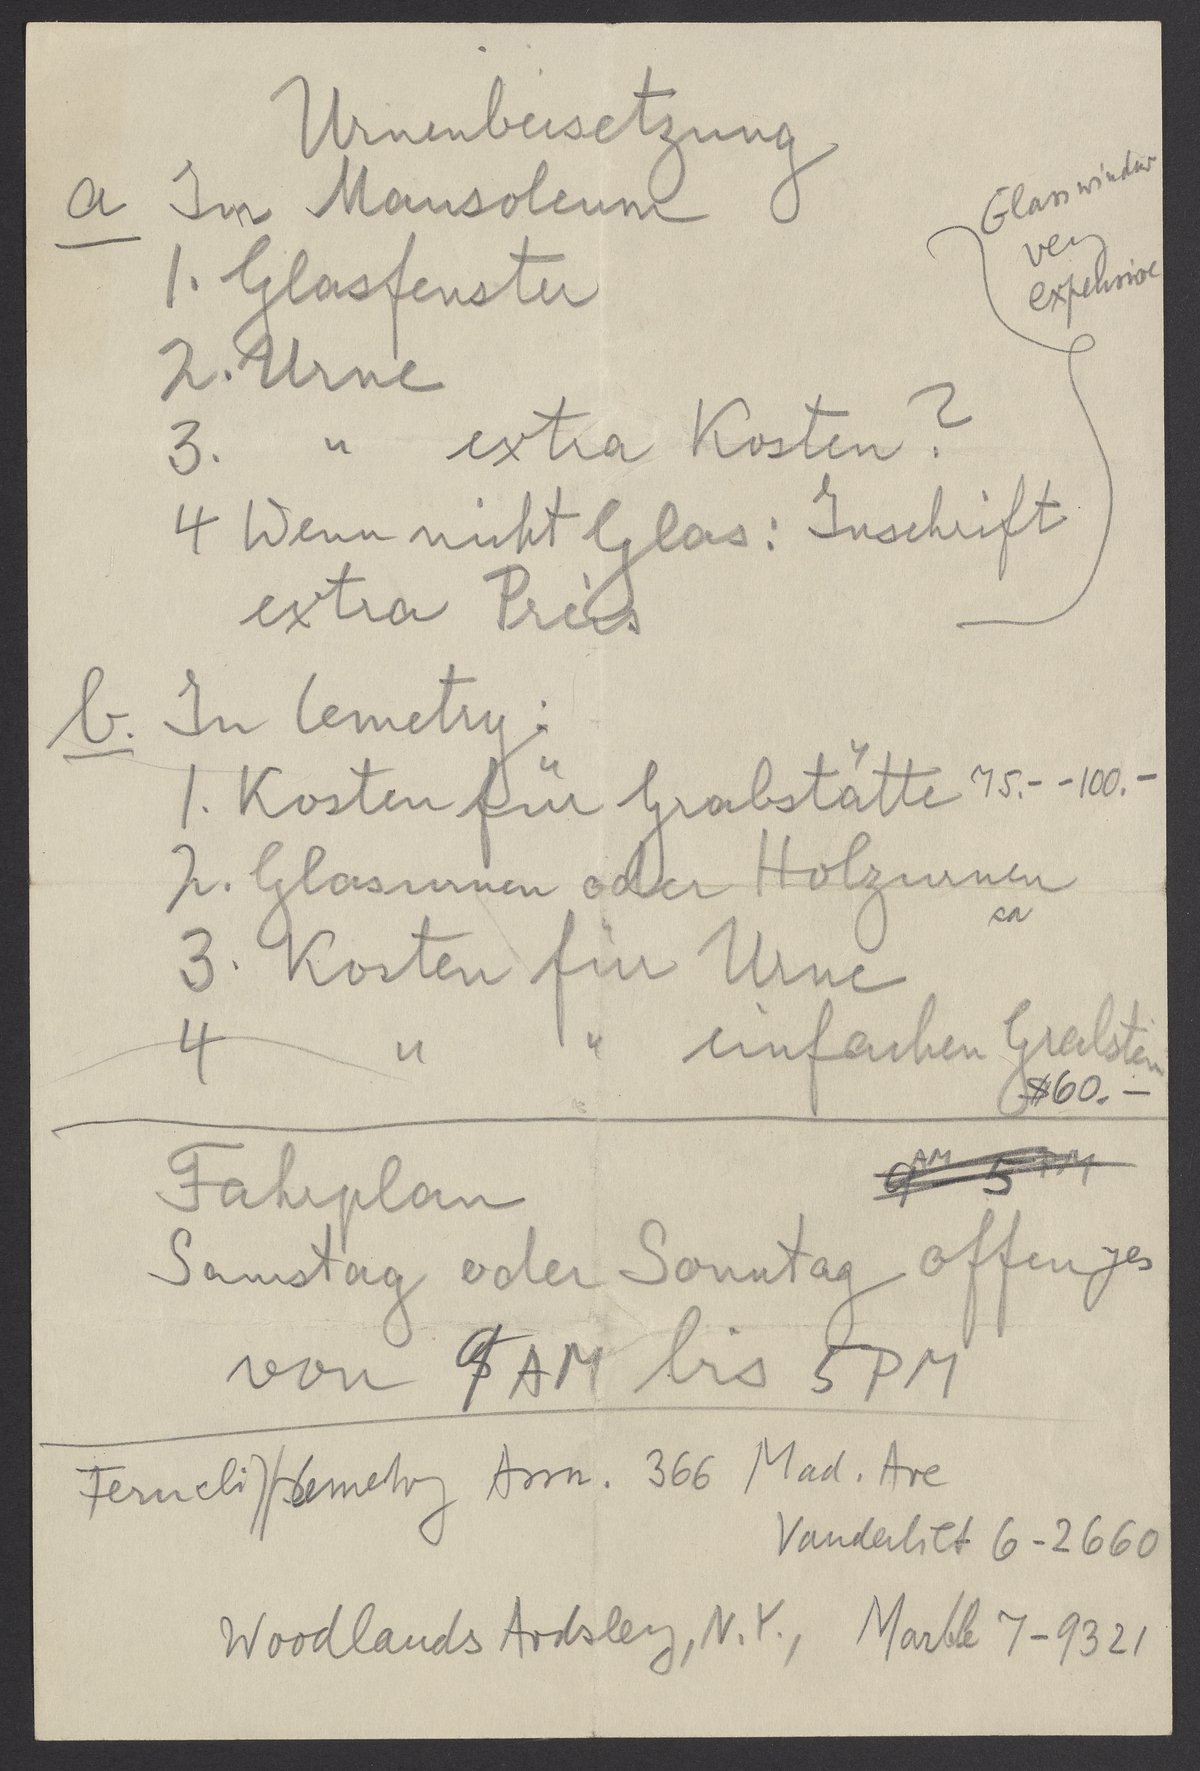 Urnenbeisetzung
a In Mausoleum
Glass window
very
expensive
1. Glasfenster
2. Urne
3. " extra Kosten?
4 Wenn nicht Glas: Inschrift
extra Preis
b. In Cemetry:
1. Kosten für Grabstätte 75.- -100.-
2. Glasurnen oder Holzurnen
ca
3. Kosten für Urne
4 " " einfachen Grabstein
$60.-
Fahrplan 9 AM 5 PM
Samstag oder Sonntag offen yes
von 9 AM bis 5 PM
Ferncliff Cemetry Assn. 366 Mad. Ave
Vanderbilt 6-2660
Woodlands Ardsley, N.Y., Marble 7-9321